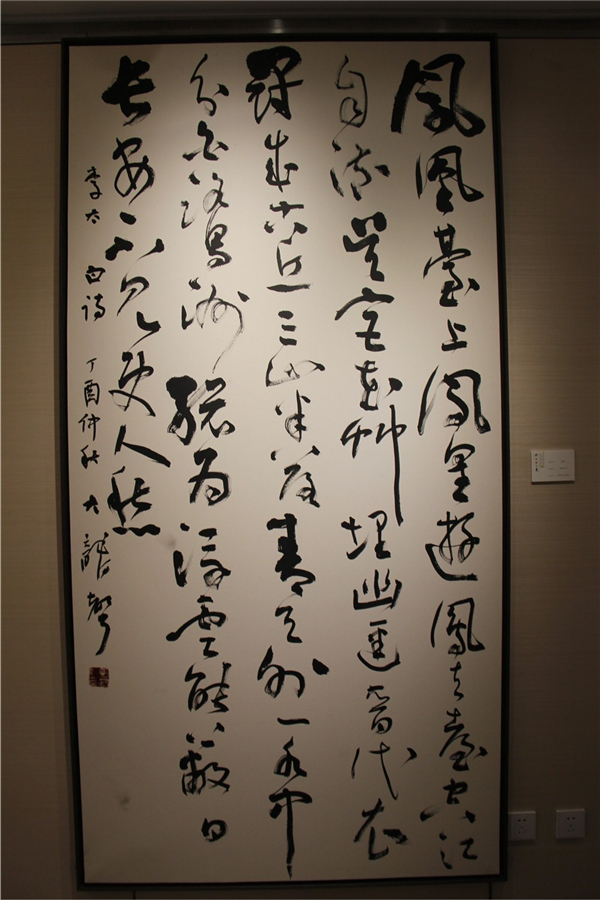 鳳凰臺上鳳皇遊鳳去臺空江
自流吴宫花艸埋幽逕晉代衣
冠成古丘三山半落青天外一水中
分白鷺洲總為浮雲能蔽日
長安不見使人愁
李太白诗 丁酉仲秋 大龍聲